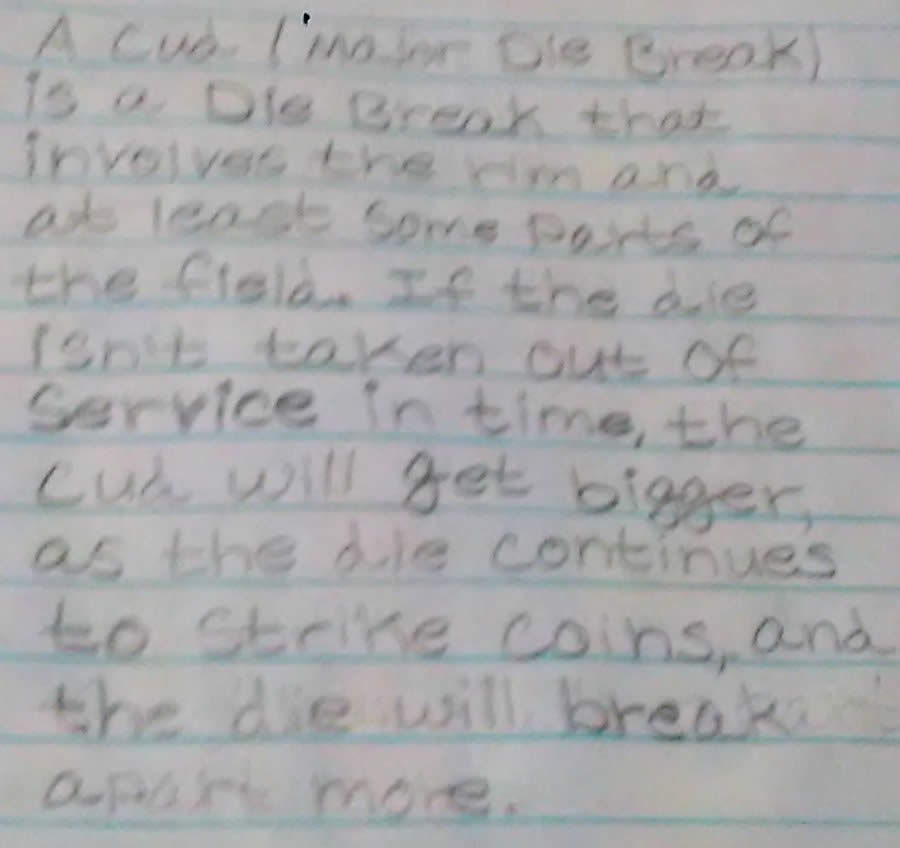 A Cud ('major Die Break)
is a Die Break that
involves the rim and
at least some parts of
the field. If the die
isn't taken out of
service in time, the
cud will get bigger,
as the die continues
to strike coins, and
the die will break
apart more.